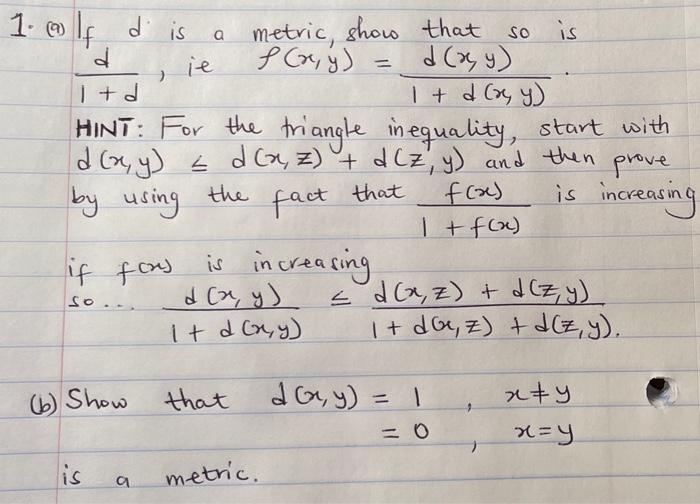 1. (a) If d is a metric, show that so is
d/(1 + d), ie ρ(x, y) = d(x, y)/(1 + d(x, y)).
HINT: For the triangle inequality, start with
d(x, y) ≤ d(x, z) + d(z, y) and then prove
by using the fact that f(x)/(1 + f(x)) is increasing
if f(x) is increasing
so... d(x, y)/(1 + d(x, y)) ≤ (d(x, z) + d(z, y))/(1 + d(x, z) + d(z, y)).
(b) Show that d(x, y) = 1 , x ≠ y
= 0 , x = y
is a metric.